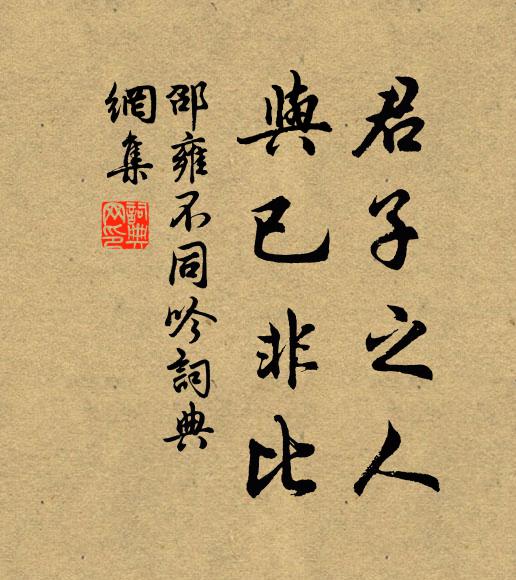 君子之人
與已非比
邵雍不同吟詞典
網集
詞典
网印